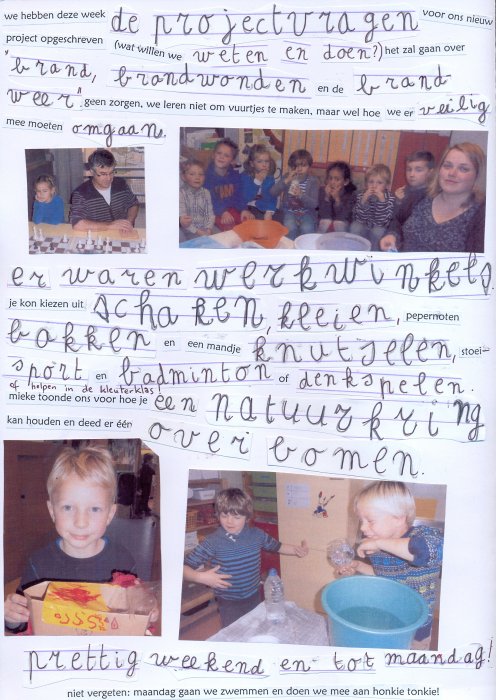 we hebben deze week de projectvragen voor ons nieuw
project opgeschreven (wat willen we weten en doen?) het zal gaan over
"brand, brandwonden en de brand
weer". geen zorgen, we leren niet om vuurtjes te maken, maar wel hoe we er veilig
mee moeten omgaan.
er waren werkwinkels.
je kon kiezen uit schaken, kleien, pepernoten
bakken en een mandje knutselen, stoei-
sport en badminton of denkspelen.
of helpen in de kleuterklas!
mieke toonde ons voor hoe je een natuurkring
kan houden en deed er één over bomen.
prettig weekend en tot maandag!
niet vergeten: maandag gaan we zwemmen en doen we mee aan honkie tonkie!